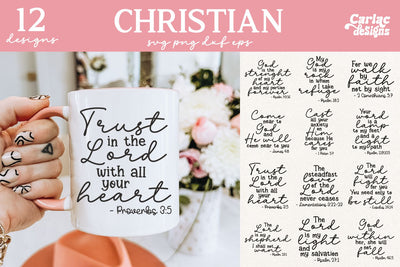 12
designs
CHRISTIAN
svg png dxf eps
Carlac
designs
Trust
in the
Lord
with all
your
heart
- Proverbs 3:5
God
is the
strenght
of my
heart
and my portion
forever
My
God
is my
rock
in whom
I take
refuge
For we
walk by
faith
not by sight
- 2 Corinthians 5:7
Come
near to
God
and He
will come
near to you
Cast
all your
anxiety
on Him
because He
cares for
you
Your
word is
a lamp
to my feet
and a
light
to my path
Trust
in the
Lord
with all
your
heart
- Proverbs 3:5
The
steadfast
love of the
Lord
never ceases
- Lamentations 3:22-23
The
Lord will
fight
for you
You need only to
be still
The
Lord
is my
shepherd
I shall not
want
The
Lord
is my
light
and my
salvation
God
is
within
her, she
will not
fall